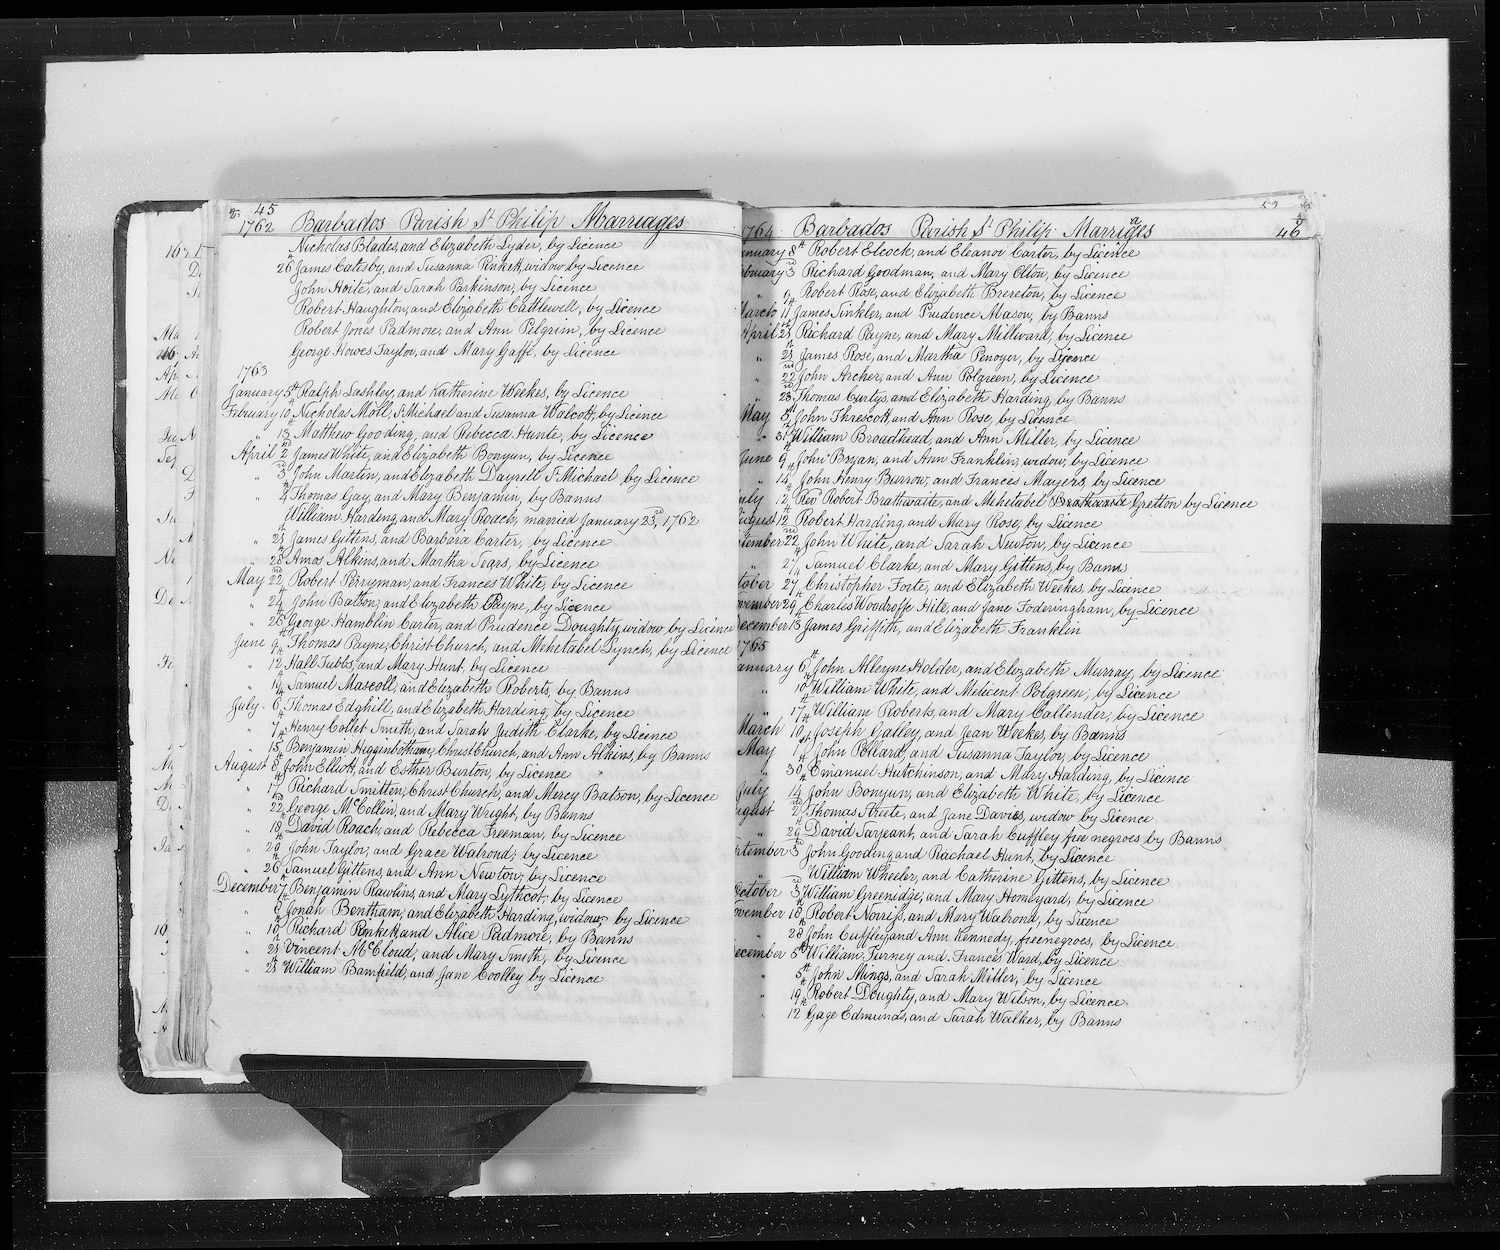 45
1762 Barbados Parish St Philip Marriages
Nicholas Blades, and Elizabeth Lyder, by Licence
26th James Catesby, and Susanna Pinkett, widow by Licence
John Hoite, and Sarah Parkinson, by Licence
Robert Haughton, and Elizabeth Cattlewell, by Licence
Robert Jones Padmore, and Ann Pelgrim, by Licence
George Howes Taylor, and Mary Gaffe, by Licence
1763
January 5th Ralph Lashley, and Katherine Weekes, by Licence
February 10 Nicholas Moll, St Michael and Susanna Walcott, by Licence
" 13th Matthew Gooding, and Rebecca Hunte, by Licence
April 2nd James White, and Elizabeth Bonyun, by Licence
" 3rd John Martin, and Elizabeth Dayrell St Michael by Licence
" 4th Thomas Gay, and Mary Benjamin, by Banns
William Harding, and Mary Roach, married January 23rd, 1762
" 23 James Gittens, and Barbara Carter, by Licence
" 28th Amos Alkins, and Martha Tegrs, by Licence
May 22nd Robert Perryman, and Frances White, by Licence
" 24th John Batson, and Elizabeth Payne, by Licence
" 25th George Hamblin Carter, and Prudence Doughty, widow by Licence
June 9th Thomas Payne, Christ Church, and Mehetabel Lynch, by Licence
" 12 Hall Tubbs, and Mary Hunt, by Licence
" 14th Samuel Mascoll, and Elizabeth Roberts, by Banns
July 6th Thomas Edghill, and Elizabeth Harding, by Licence
" 7th Henry Collet Smith, and Sarah Judith Clarke, by Licence
" 15th Benjamin Higginbotham, Christ Church, and Ann Alkins, by Banns
August 8th John Elliott, and Esther Burton, by Licence
" 17th Richard Smitten, Christ Church, and Mercy Batson, by Licence
" 22nd George McCollin, and Mary Wright, by Banns
" 18th David Roach, and Rebecca Freeman, by Licence
" 20th John Taylor, and Grace Walrond, by Licence
" 26th Samuel Gittens, and Ann Newton, by Licence
December 7 Benjamin Rawlins, and Mary Lythcot, by Licence
" 8th Jonah Bentham, and Elizabeth Harding, widow, by Licence
" 10th Richard Pinket, and Alice Padmore, by Banns
" 24 Vincent McCloud, and Mary Smith, by Licence
" 24 William Bamfield, and Jane Coolley by Licence
1764 Barbados Parish St Philip Marriages 46
January 8th Robert Elcock, and Eleanor Carter, by Licence
February 3rd Richard Goodman, and Mary Olton, by Licence
" 9th Robert Rose, and Elizabeth Brereton, by Licence
March 11 James Tinkler, and Prudence Mason, by Banns
April 23rd Richard Payne, and Mary Millward, by Licence
" 23 James Rose, and Martha Penoyer, by Licence
" 22nd John Archer, and Ann Polgreen, by Licence
" 23 Thomas Curtys, and Elizabeth Harding, by Banns
May 5th John Threscott, and Ann Rose, by Licence
" 31st William Broadhead, and Ann Miller, by Licence
June 9th John Bryan, and Ann Franklin, widow, by Licence
" 14th John Henry Burrow, and Frances Mayers, by Licence
July 12 Revd Robert Brathwaite, and Mehetabel Gretton by Licence
August 12th Robert Harding, and Mary Rose, by Licence
September 22nd John White, and Sarah Newton, by Licence
" 27th Samuel Clarke, and Mary Gittens, by Banns
October 27th Christopher Forte, and Elizabeth Weekes, by Licence
November 29th Charles Woodroffe Hile, and Jane Foderingham, by Licence
December 13 James Griffith, and Elizabeth Franklin
1765
January 6th John Alleyne Holder, and Elizabeth Murray, by Licence
" 10th William White, and Melicent Polgreen, by Licence
" 17th William Roberts, and Mary Callender, by Licence
March 10th Joseph Galley, and Jean Weekes, by Banns
May 1st John Pollard, and Susanna Taylor, by Licence
" 30th Emanuel Hutchinson, and Mary Harding, by Licence
July 14 John Bonyun, and Elizabeth White, by Licence
August 2nd Thomas Streete, and Jane Davies, widow by Licence
" 29 David Sargeant, and Sarah Cuffley free negroes by Banns
September 3rd John Gooding and Rachael Hunt, by Licence
" William Wheeler, and Catherine Gittens, by Licence
October 3rd William Greenidge, and Mary Homeyard, by Licence
November 18th Robert Norriss, and Mary Walrond, by Licence
" 28 John Cuffley and Ann Kennedy, free negroes, by Licence
December 5th William Turney and Frances Ward, by Licence
" 5th John Mings, and Sarah Miller, by Licence
" 19th Robert Doughty, and Mary Wilson, by Licence
" 12 Gage Edmunds, and Sarah Walker, by Banns